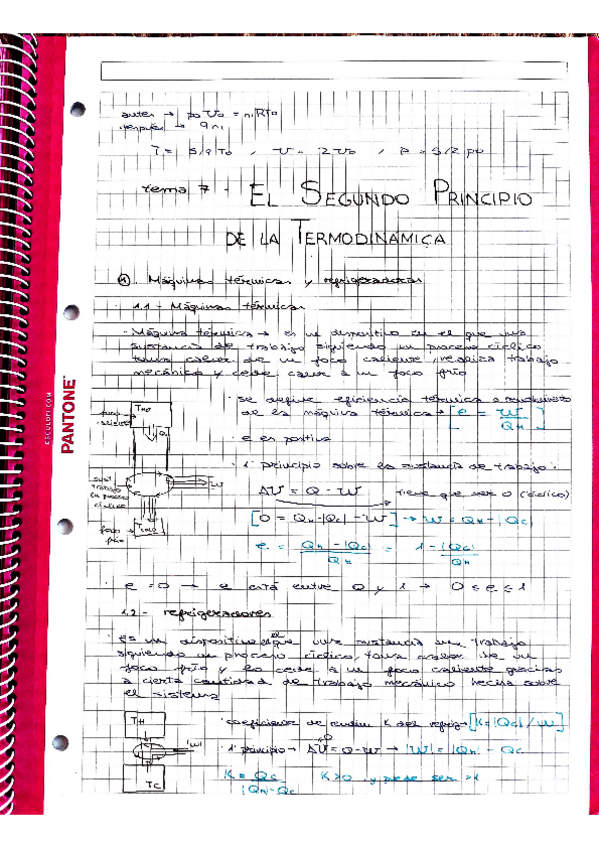 antes → p₀V₀ = n₁RT₀
después → 9n₁
T = 5/9 T₀ , V = 2V₀ , P = 5/2 p₀
Tema 7 - EL SEGUNDO PRINCIPIO
DE LA TERMODINÁMICA
1. Máquinas térmicas y refrigeradoras
1.1 - Máquinas térmicas
· Máquina térmica → es un dispositivo en el que una
sustancia de trabajo siguiendo un proceso cíclico
toma calor de un foco caliente, realiza trabajo
mecánico y cede calor a un foco frío
· se define eficiencia térmica o rendimiento
de la máquina térmica → [e = W / QH]
· e es positiva
· 1º principio sobre la sustancia de trabajo:
ΔU = Q - W tiene que ser 0 (cíclico)
[0 = QH - |Qc| - W] → W = QH - |Qc|
e = QH - |Qc| / QH = 1 - |Qc| / QH
foco caliente
TH
Q
sust. trabajo en proceso cíclico
W
foco frío
· e = 0 → e está entre 0 y 1 → 0 ≤ e ≤ 1
1.2 - refrigeradores
· es un dispositivo en el que una sustancia de trabajo
siguiendo un proceso cíclico toma calor de un
foco frío y lo cede a un foco caliente gracias
a cierta cantidad de trabajo mecánico hecha sobre
el sistema
TH
|W|
Tc
· coeficiente de rendim K del refrig → [K = |Qc| / W]
· 1º principio → ΔU = Q - W → |W| = |QH| - Qc
K = Qc / |QH| - Qc K > 0 y puede ser > 1
ESCOLOFI.COM
PANTONE®